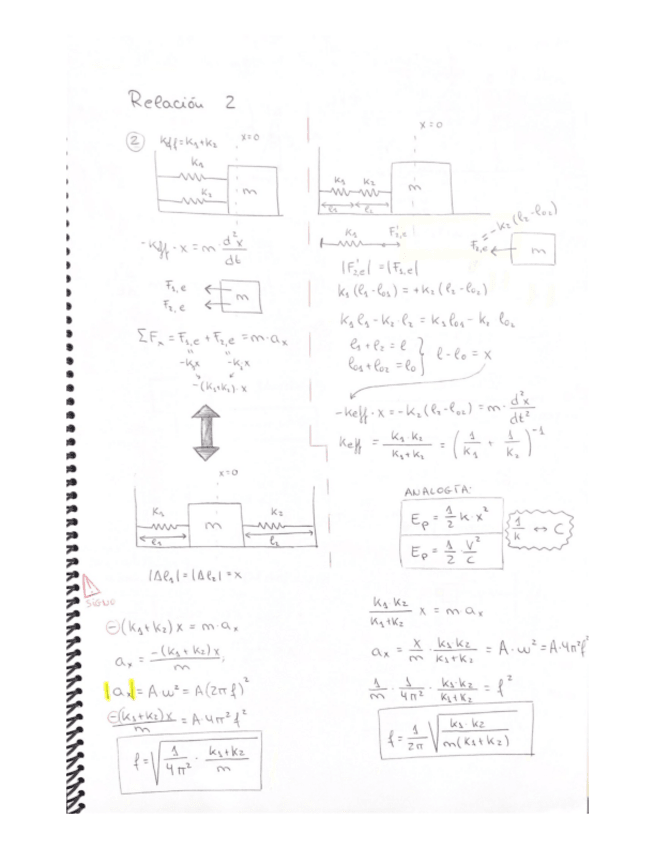 Relación 2
② Keff=K₁+K₂
x=0
K₁
K₂
m
-Keff · x = m · d²x/dt
F₁,e
F₂,e
m
ΣFₓ = F₁,e + F₂,e = m·aₓ
-K₁x -K₂x
-(K₁+K₂)·x
x=0
K₁ m K₂
l₁ l₂
|Δl₁| = |Δl₂| = x
SIGNO
-(K₁+K₂)x = m·aₓ
aₓ = -(K₁+K₂)x/m
|aₓ| = A·ω² = A(2πf)²
-(K₁+K₂)x/m = A·4π²f²
f = √(1/4π² · K₁+K₂/m)
x=0
K₁ K₂ m
l₁ l₂
F'₂,e
F₂,e = -K₂(l₂-l₀₂)
m
|F'₂,e| = |F₂,e|
K₁(l₁-l₀₁) = +K₂(l₂-l₀₂)
K₁l₁ - K₂·l₂ = K₁l₀₁ - K₂ l₀₂
l₁+l₂ = l
l₀₁+l₀₂ = l₀ } l-l₀ = x
-Keff·x = -K₂(l₂-l₀₂) = m·d²x/dt²
Keff = K₁·K₂/K₁+K₂ = (1/K₁ + 1/K₂)⁻¹
ANALOGÍA:
Eₚ = 1/2 K·x²
1/K ↔ C
Eₚ = 1/2 · V²/C
K₁·K₂/K₁+K₂ x = m·aₓ
aₓ = x/m · K₁·K₂/K₁+K₂ = A·ω² = A·4π²f²
1/m · 1/4π² · K₁·K₂/K₁+K₂ = f²
f = 1/2π √(K₁·K₂/m(K₁+K₂))